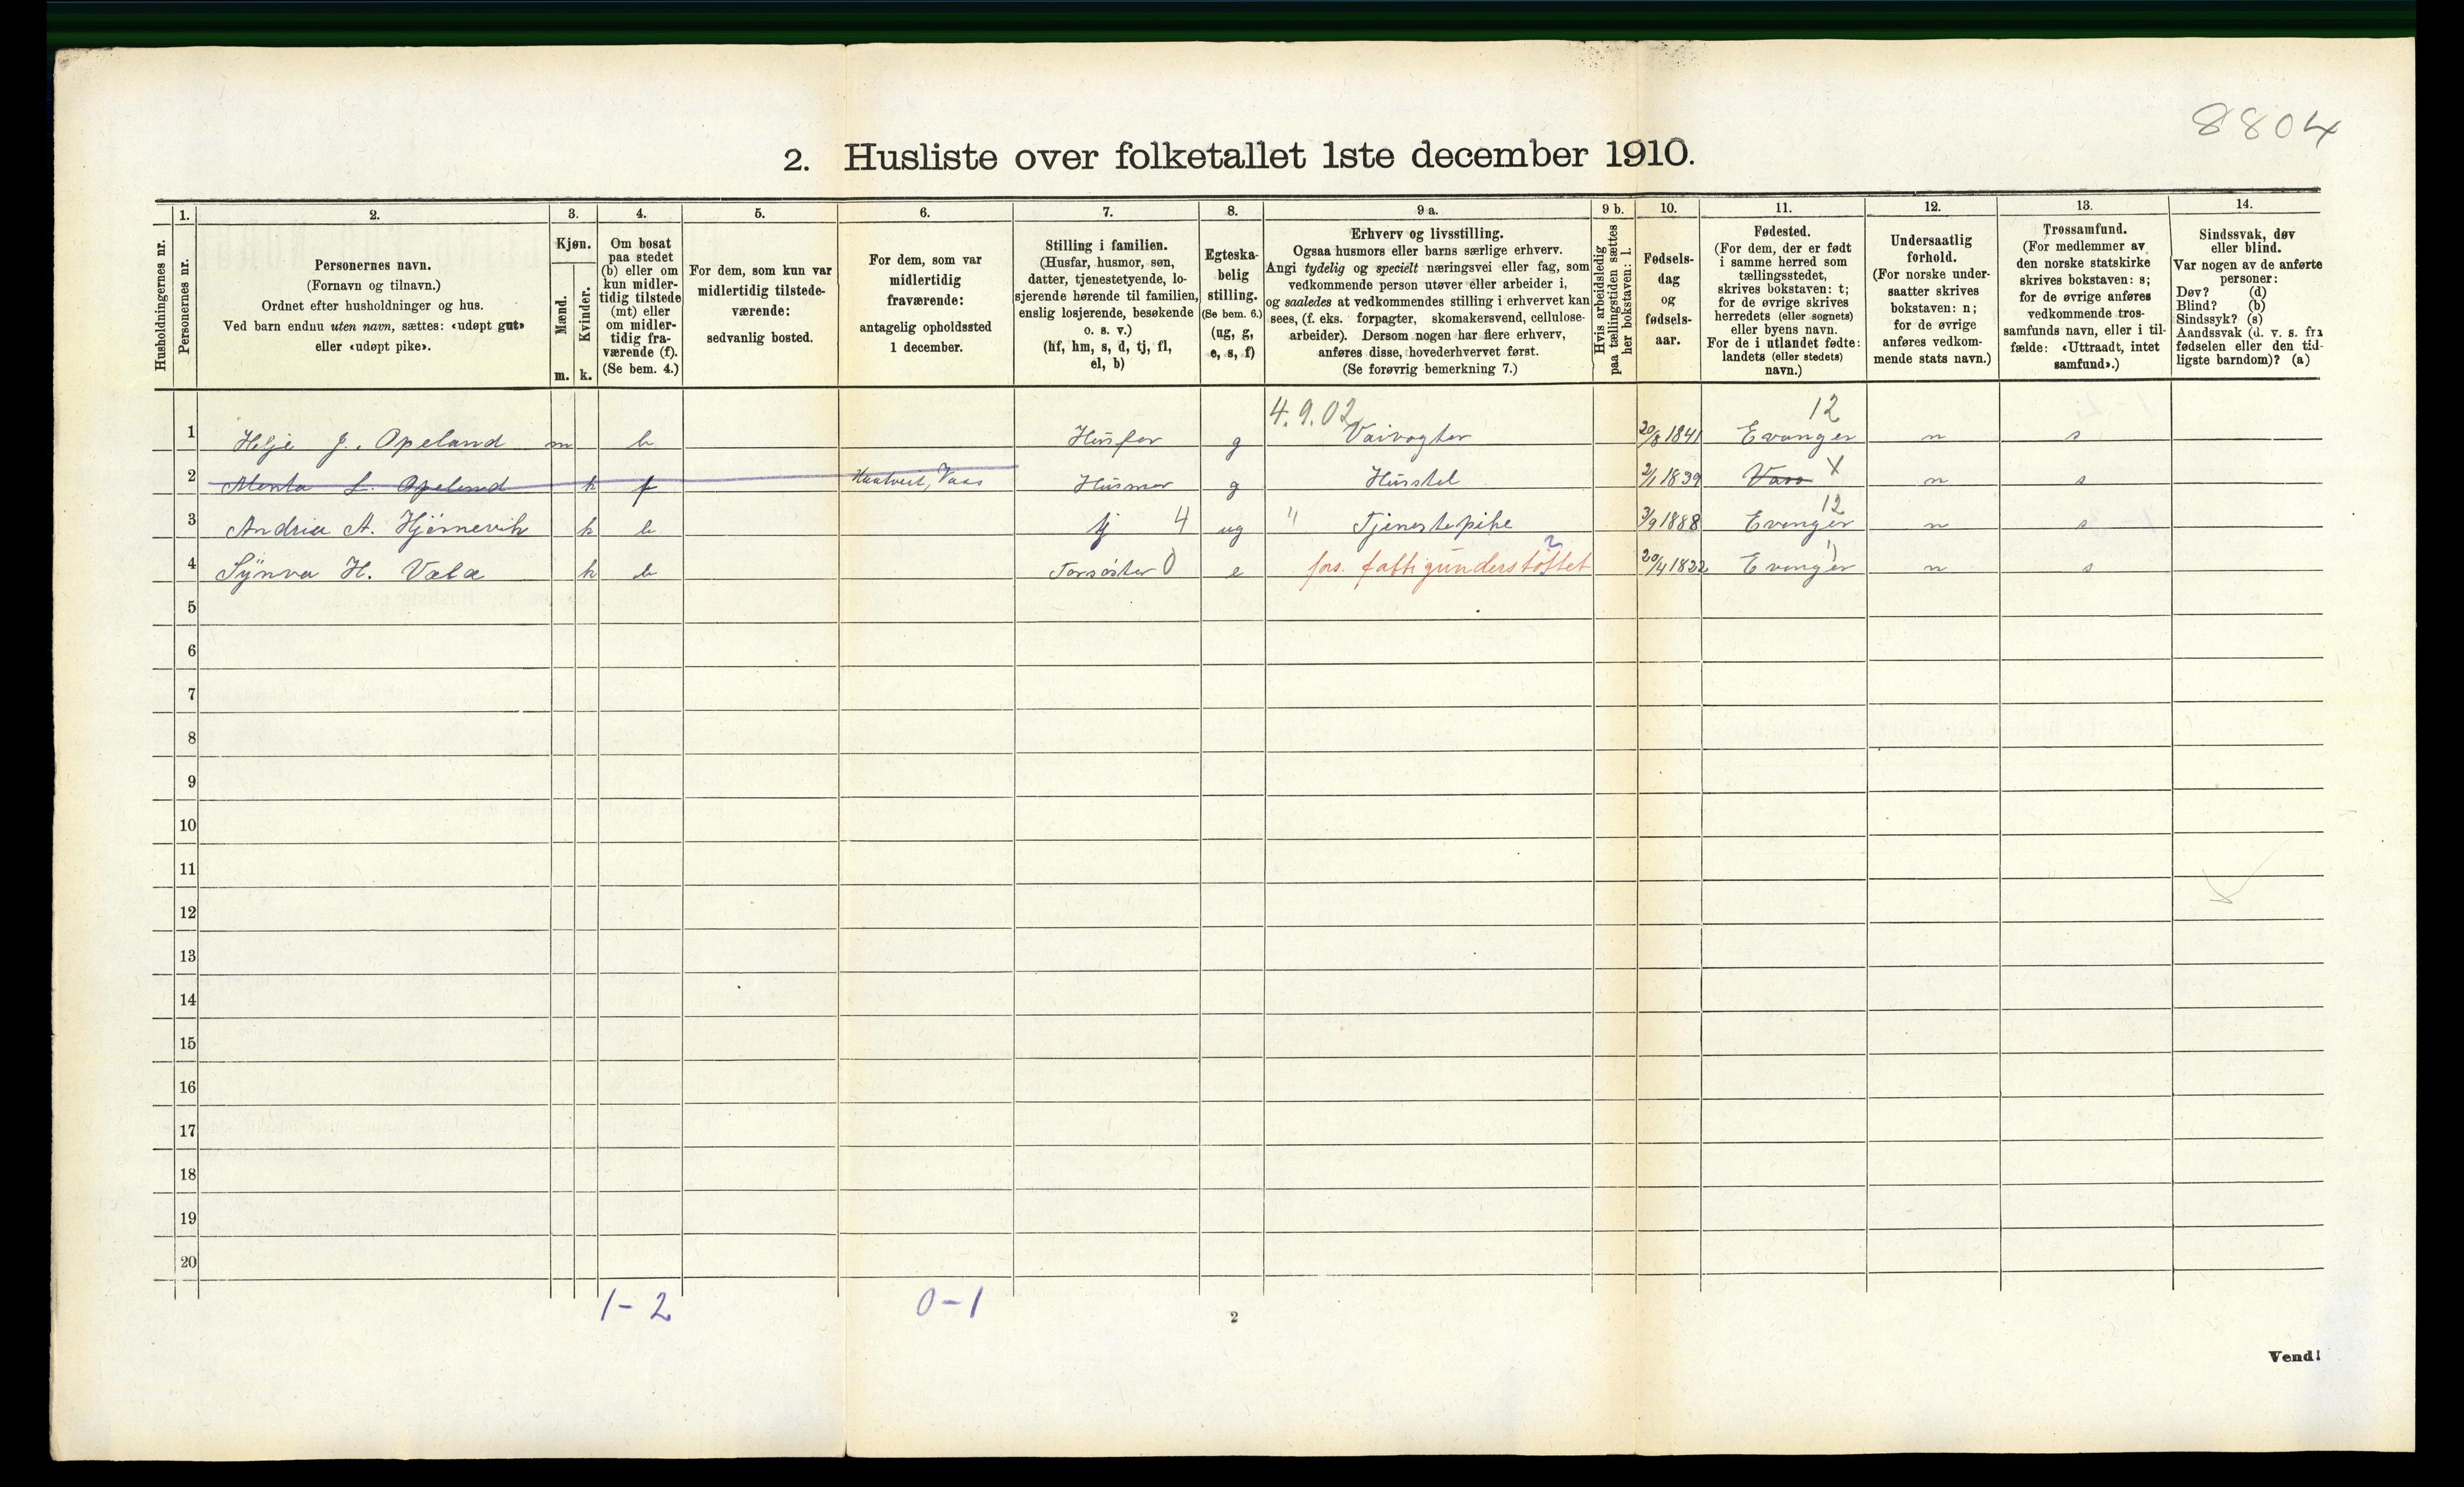 8804
2. Husliste over folketallet 1ste december 1910.
Husholdningernes nr.
1. Personernes nr.
2. Personernes navn.
(Fornavn og tilnavn.)
Ordnet efter husholdninger og hus.
Ved barn endnu uten navn, sættes: «udøpt gut»
eller «udøpt pike».
3. Kjøn.
Mænd. m.
Kvinder. k.
4. Om bosat
paa stedet
(b) eller om
kun midler-
tidig tilstede
(mt) eller
om midler-
tidig fra-
værende (f).
(Se bem. 4.)
5. For dem, som kun var
midlertidig tilstede-
værende:
sedvanlig bosted.
6. For dem, som var
midlertidig
fraværende:
antagelig opholdssted
1 december.
7. Stilling i familien.
(Husfar, husmor, søn,
datter, tjenestetyende, lo-
sjerende hørende til familien,
enslig losjerende, besøkende
o. s. v.)
(hf, hm, s, d, tj, fl,
el, b)
8. Egteska-
belig
stilling.
(Se bem. 6.)
(ug, g,
e, s, f)
9 a. Erhverv og livsstilling.
Ogsaa husmors eller barns særlige erhverv.
Angi tydelig og specielt næringsvei eller fag, som
vedkommende person utøver eller arbeider i,
og saaledes at vedkommendes stilling i erhvervet kan
sees, (f. eks. forpagter, skomakersvend, cellulose-
arbeider). Dersom nogen har flere erhverv,
anføres disse, hovederhvervet først.
(Se forøvrig bemerkning 7.)
9 b. Hvis arbeidsledig
paa tællingstiden sættes
her bokstaven: l.
10. Fødsels-
dag
og
fødsels-
aar.
11. Fødested.
(For dem, der er født
i samme herred som
tællingsstedet,
skrives bokstaven: t;
for de øvrige skrives
herredets (eller sognets)
eller byens navn.
For de i utlandet fødte:
landets (eller stedets)
navn.)
12. Undersaatlig
forhold.
(For norske under-
saatter skrives
bokstaven: n;
for de øvrige
anføres vedkom-
mende stats navn.)
13. Trossamfund.
(For medlemmer av
den norske statskirke
skrives bokstaven: s;
for de øvrige anføres
vedkommende tros-
samfunds navn, eller i til-
fælde: «Uttraadt, intet
samfund».)
14. Sindssvak, døv
eller blind.
Var nogen av de anførte
personer:
Døv? (d)
Blind? (b)
Sindssyk? (s)
Aandssvak (d. v. s. fra
fødselen eller den tid-
ligste barndom)? (a)
4.9.02 12
1 Helje J. Opeland m b Husfar g Vaivogter 20/8 1841 Evanger n s
2 L. Opeland k f Voss Husmor g Husstel 2/1 1839 Voss X n s
12
3 Andria A. Hjörnevik k b tj 4 ug " Tjenestepike 3/9 1888 Evanger n s
4 Synva H. k b 0 e fors. fattigunderstöttet 20/4 1822 Evanger n s
5
6
7
8
9
10
11
12
13
14
15
16
17
18
19
20
1-2 0-1
2
Vend!